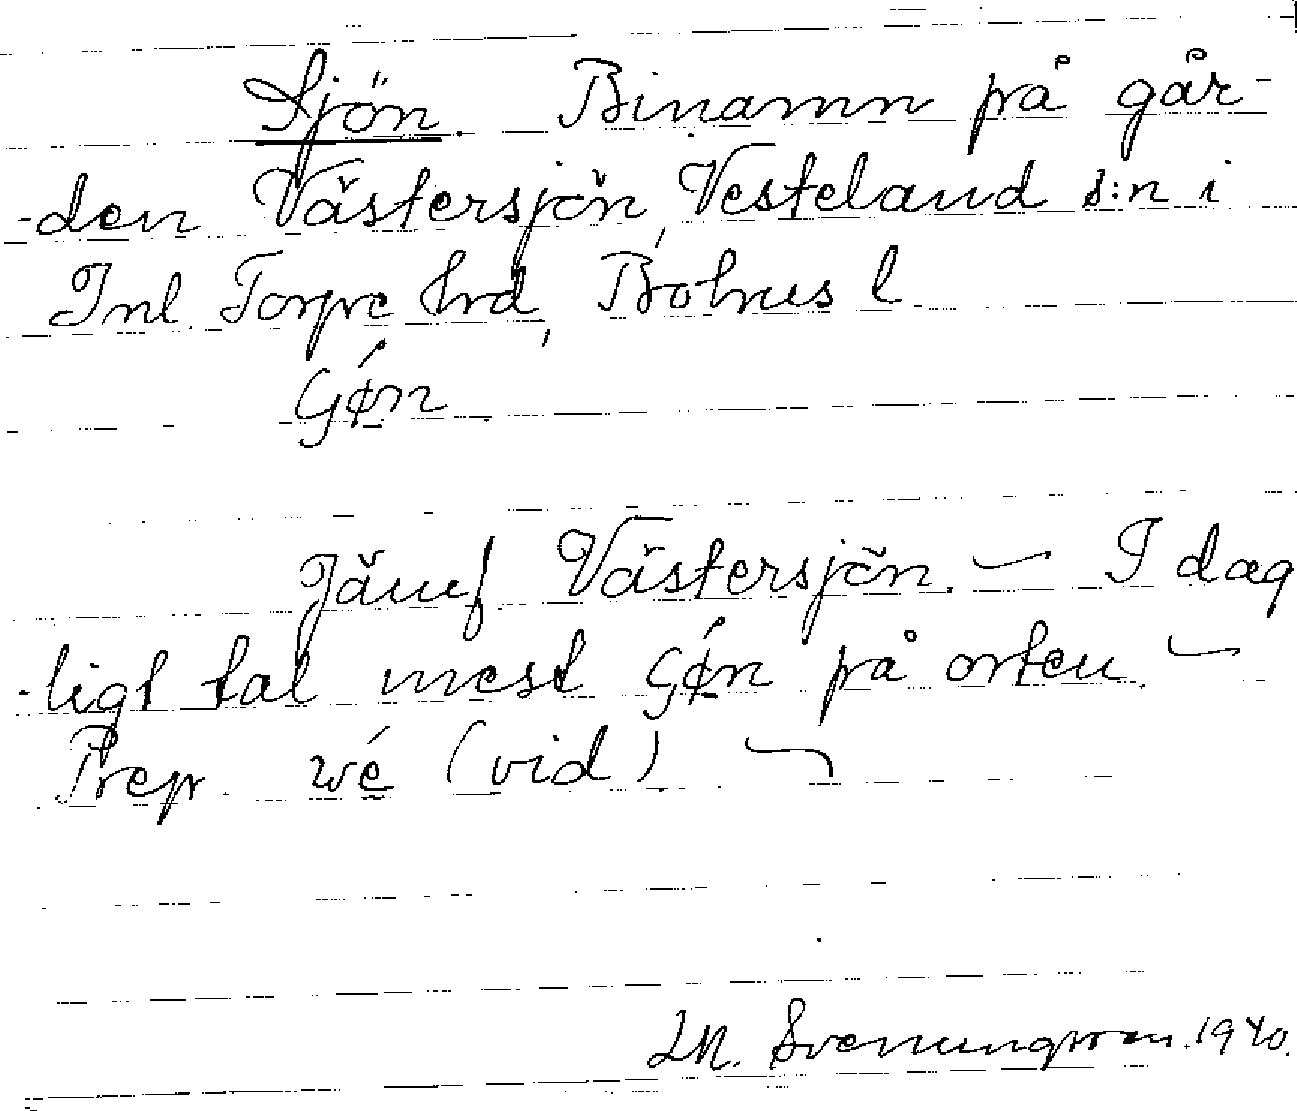 Sjön. Binamn på går-
-den Västersjön, Vesteland s:n i
Inl. Torpe hrd, Bohus l
Gǿn
Jämf Västersjön. — I dag
-ligt tal mest Gǿn på orten. —
Prep. wé (vid)
LM. Svenungsson. 1940.